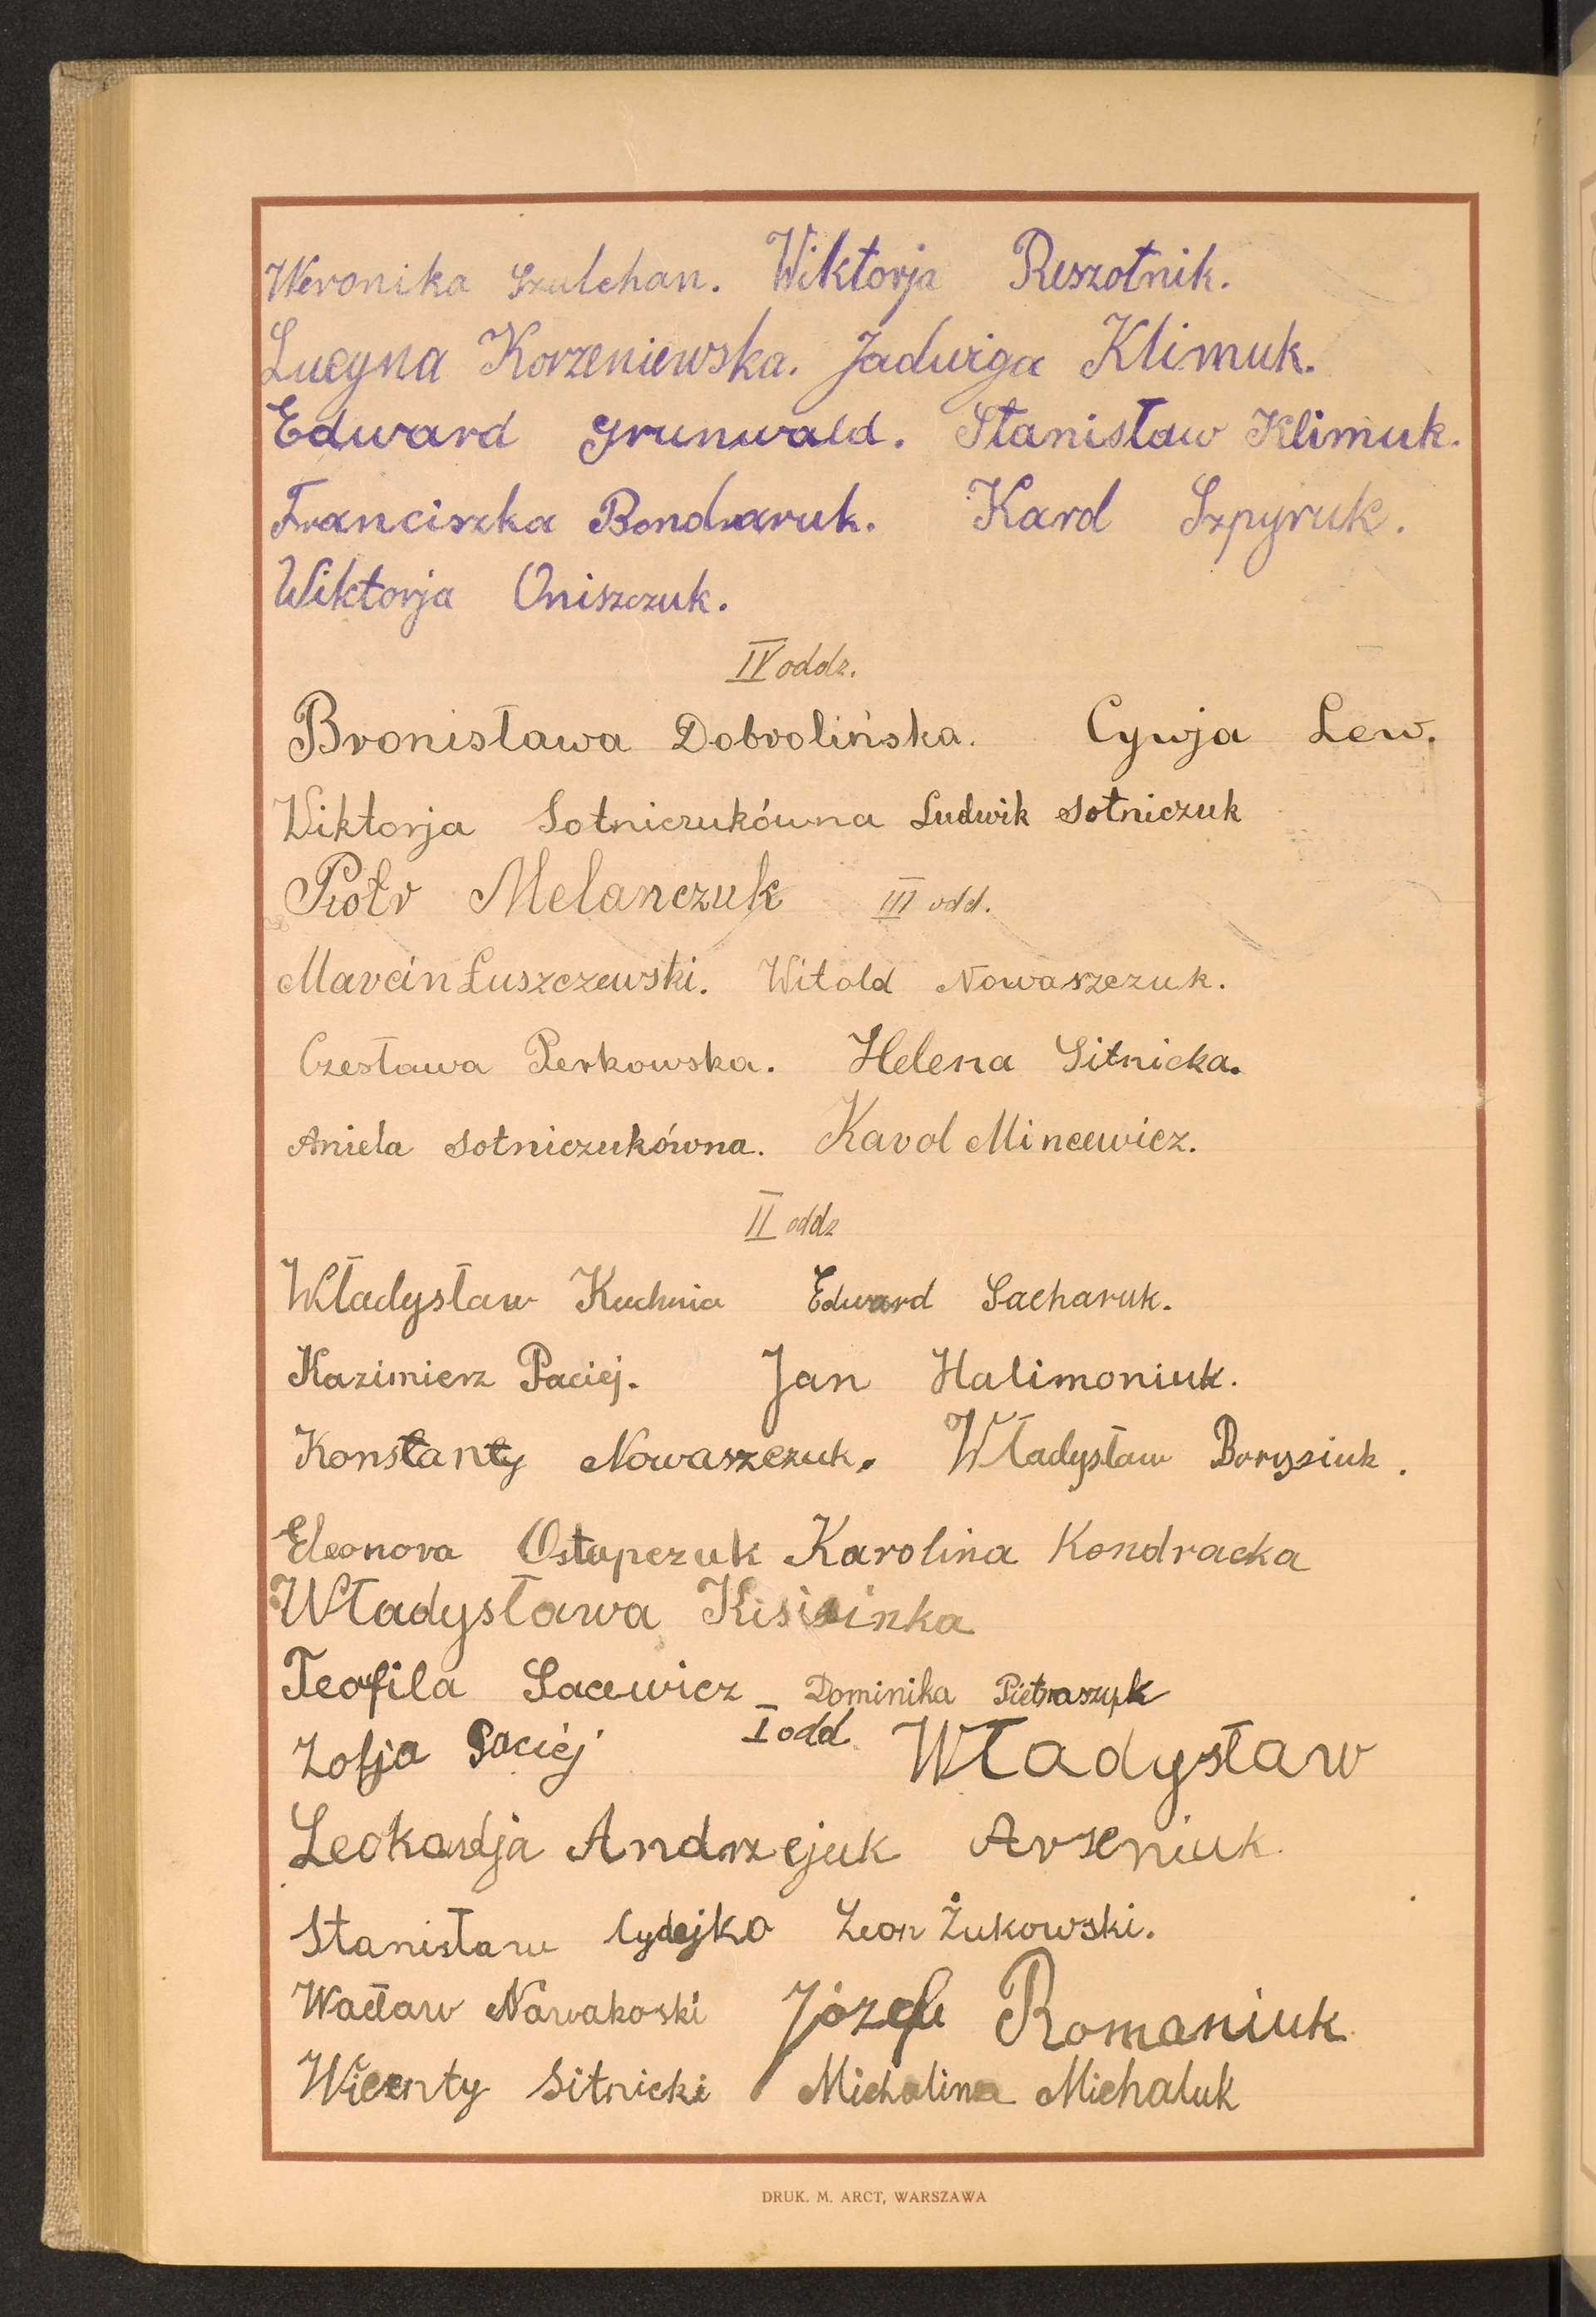 Weronika Szulchan. Wiktorja Reszotnik.
Lucyna Korzeniewska. Jadwiga Klimuk.
Edward Grunwald. Stanisław Klimuk.
Franciszka Bondaruk. Karol Szpyruk.
Wiktorja Oniszczuk.
IV oddz.
Bronisława Dobrolińska. Cywja Lew.
Wiktorja Sotniczukówna Ludwik Sotniczuk
Piotr Melanczuk III odd.
Marcin Łuszczewski. Witold Nowaszczuk.
Czesława Perkowska. Helena Sitnicka.
Aniela Sotniczukówna. Karol Mincewicz.
II oddz
Władysław Kuchnia Edward Sacharuk.
Kazimierz Paciej. Jan Halimoniuk.
Konstanty Nowaszczuk. Władysław Borysiuk.
Eleonora Ostapczuk Karolina Kondracka
Władysława
Teofila Sacewicz Dominika Pietraszyk
Zofja Paciej I odd Władysław
Leokardja Andrzejuk Arseniuk.
Stanisław Cydejko Leon Żukowski.
Wacław Nawakoski Józef Romaniuk.
Wicenty Sitnicki Michalina Michaluk
DRUK. M. ARCT, WARSZAWA